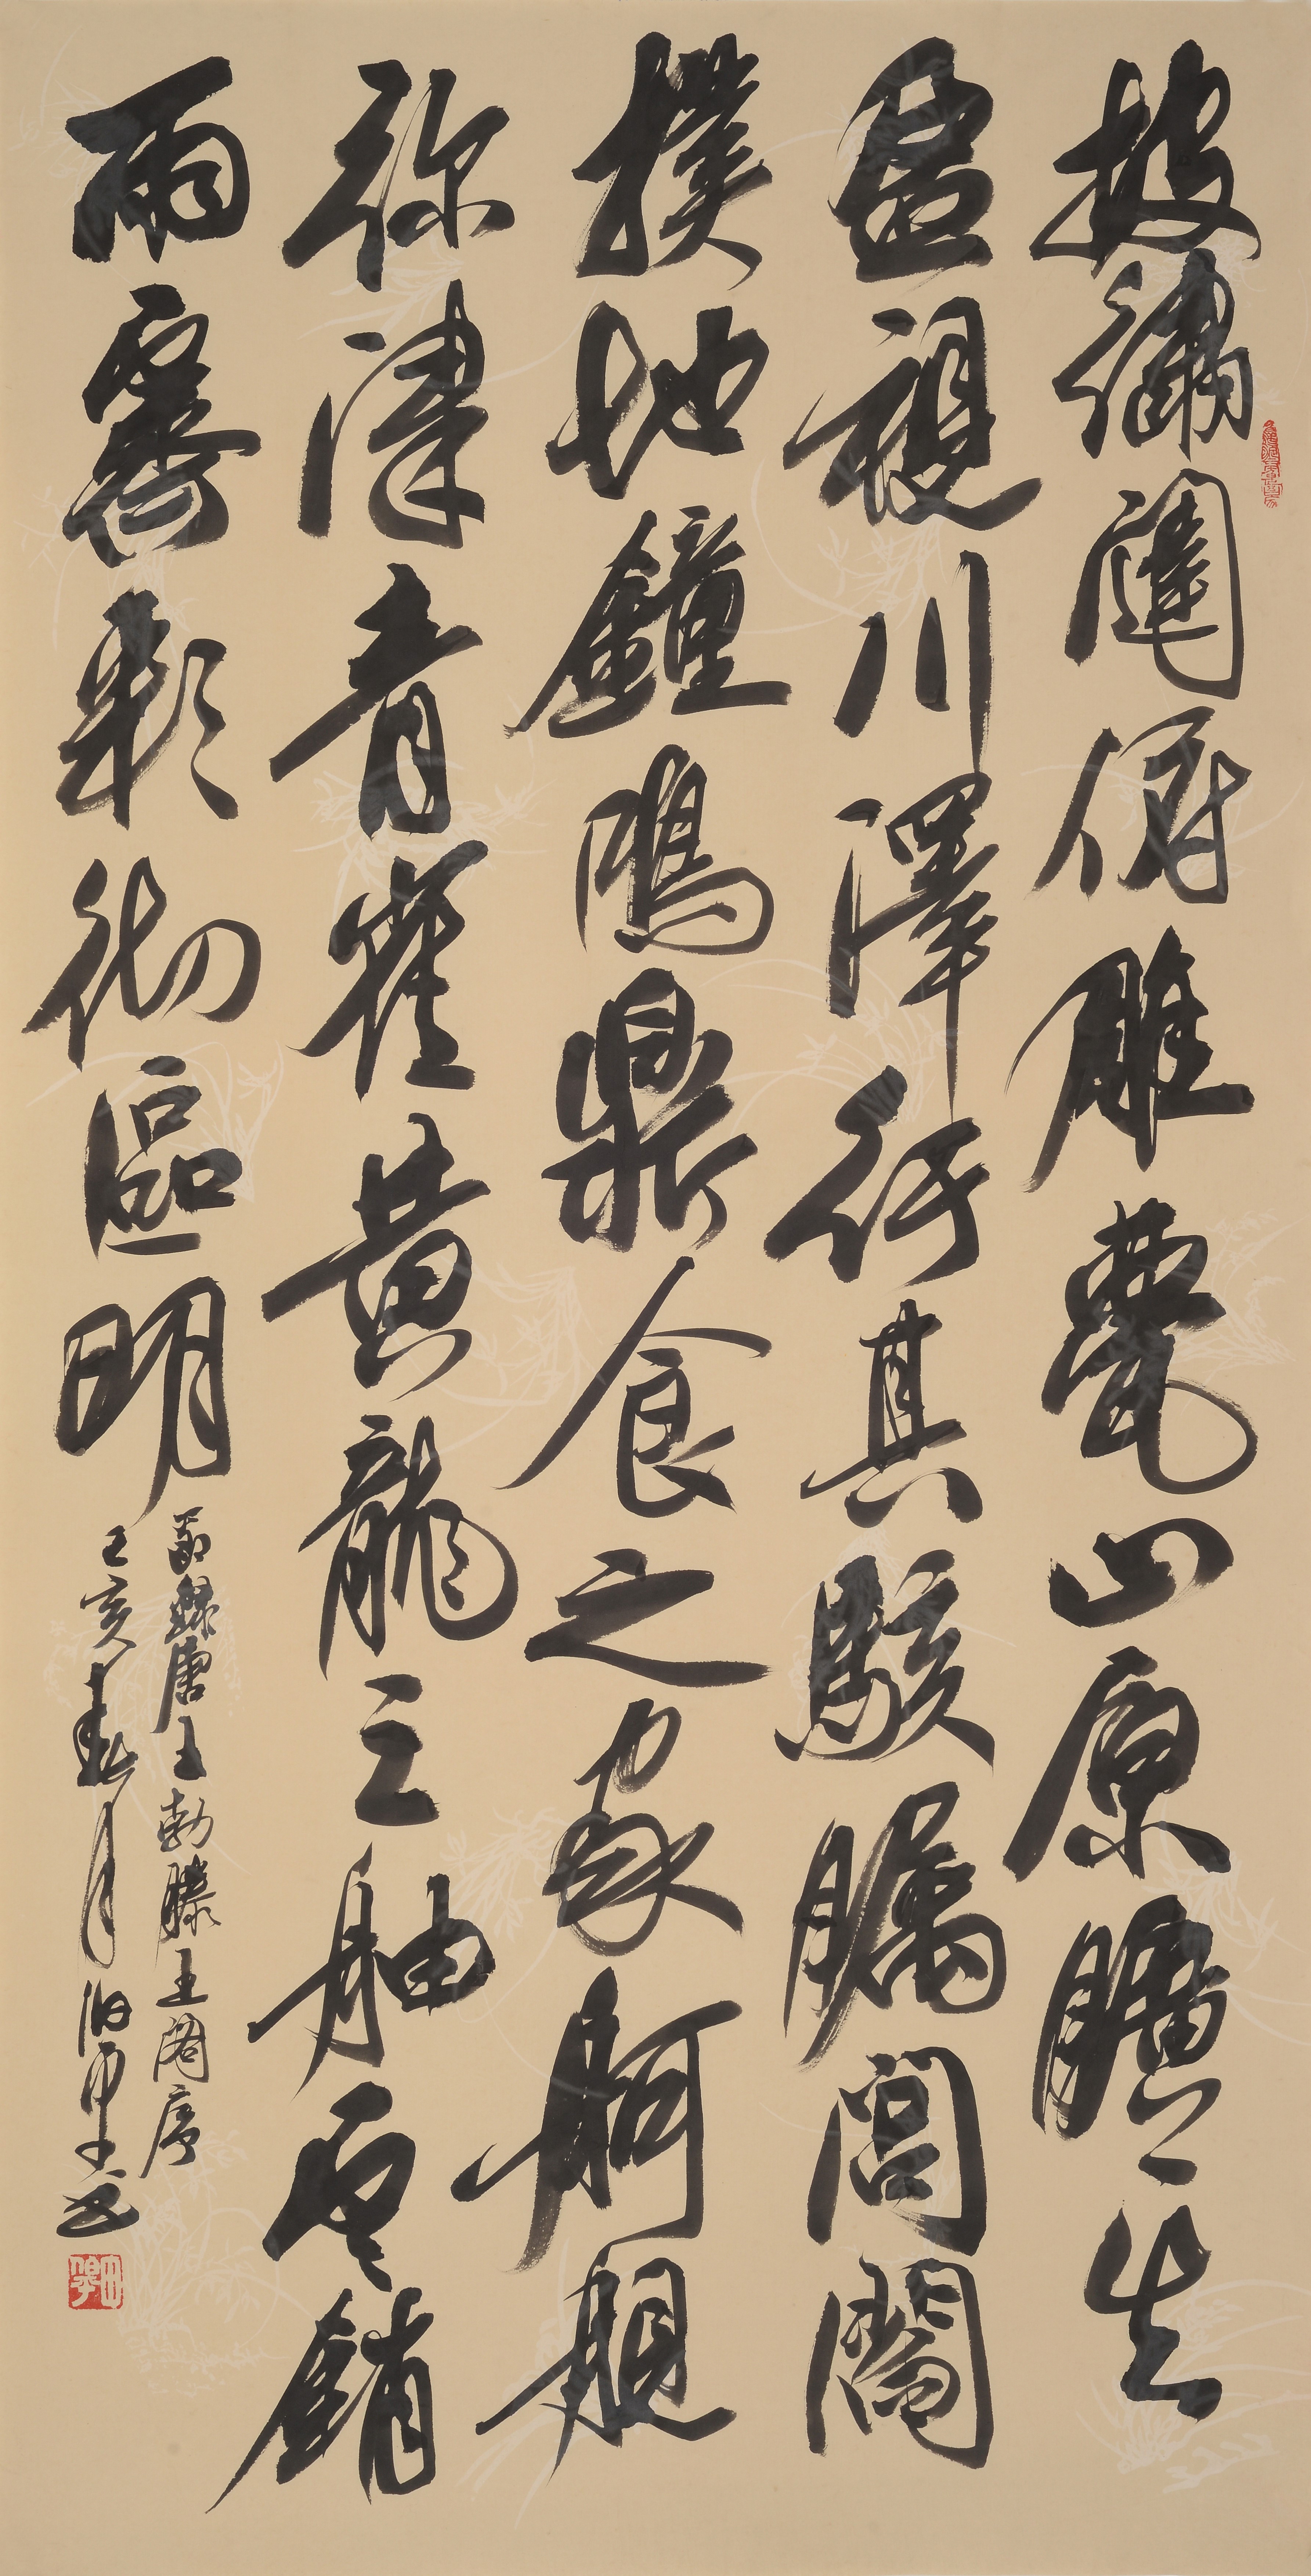 披繡闥俯雕甍山原曠其
盈視川澤紆其駭矚閭閻
撲地鐘鳴鼎食之家舸艦
弥津青雀黃龍之舳雲銷
雨霽彩徹區明
節錄唐王勃滕王閣序
己亥春月